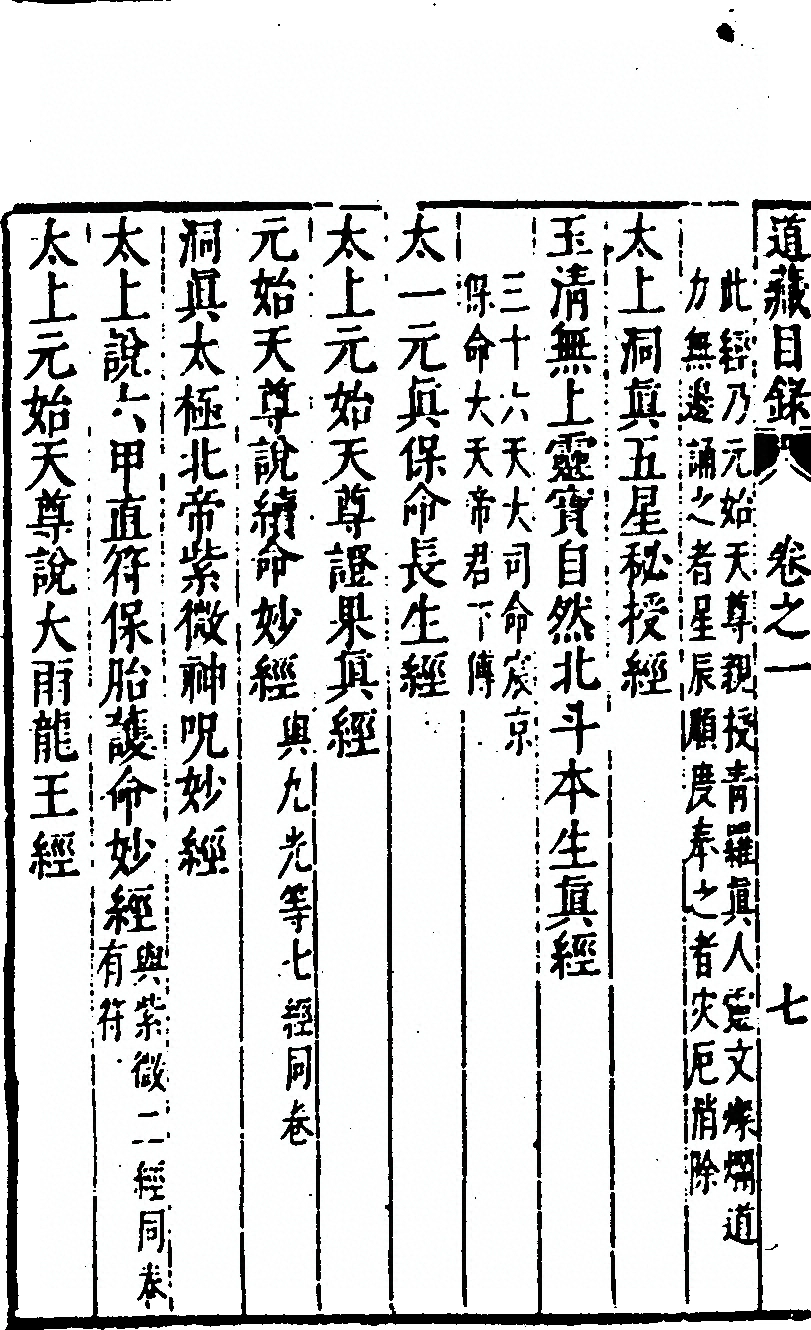 道藏目錄 卷之一 七
此經乃元始天尊親授青羅眞人靈文燦爛道
力無邊誦之者星辰順度奉之者灾厄消除
太上洞眞五星秘授經
玉淸無上靈寶自然北斗本生眞經
三十六天大司命宸京
保命大天帝君下傳
太一元眞保命長生經
太上元始天尊證果眞經
元始天尊說續命妙經 與九光等七經同卷
洞眞太極北帝紫微神呪妙經
太上說六甲直符保胎護命妙經 與紫微二經同卷
有符
太上元始天尊說大雨龍王經